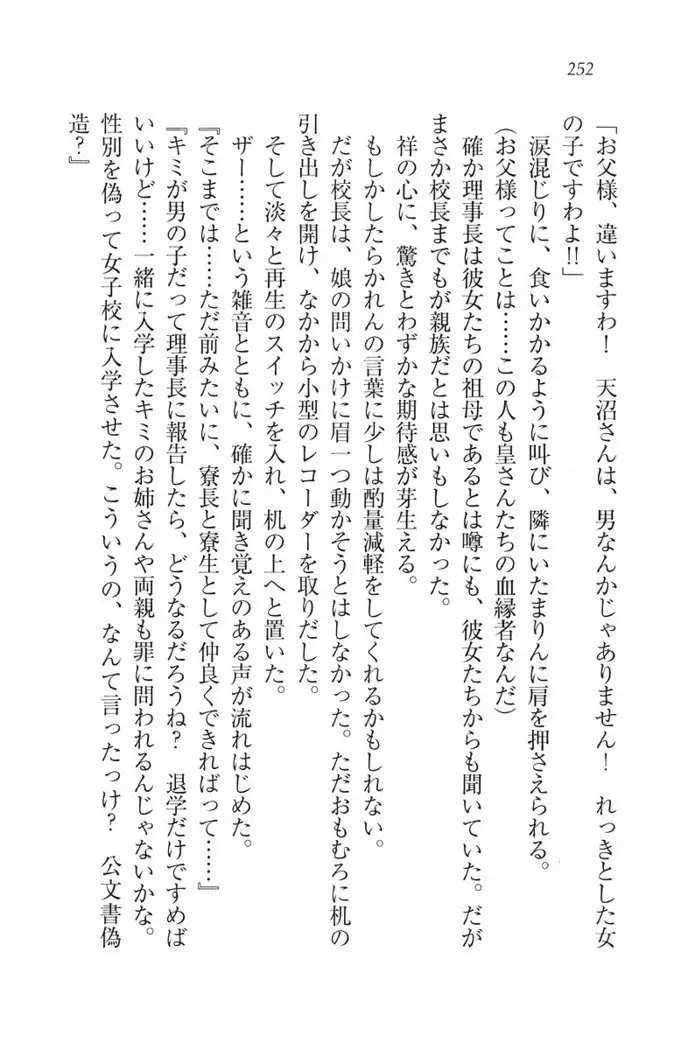 252
「お父様、違いますわ！　天沼さんは、男なんかじゃありません！　れっきとした女
の子ですわよ!!」
　涙混じりに、食いかかるように叫び、隣にいたまりんに肩を押さえられる。
（お父様ってことは……この人も皇さんたちの血縁者なんだ）
　確か理事長は彼女たちの祖母であるとは噂にも、彼女たちからも聞いていた。だが
まさか校長までもが親族だとは思いもしなかった。
　祥の心に、驚きとわずかな期待感が芽生える。
　もしかしたらかれんの言葉に少しは酌量減軽をしてくれるかもしれない。
　だが校長は、娘の問いかけに眉一つ動かそうとはしなかった。ただおもむろに机の
引き出しを開け、なかから小型のレコーダーを取りだした。
　そして淡々と再生のスイッチを入れ、机の上へと置いた。
　ザー……という雑音とともに、確かに聞き覚えのある声が流れはじめた。
『そこまでは……ただ前みたいに、寮長と寮生として仲良くできればって……』
『キミが男の子だって理事長に報告したら、どうなるだろうね？　退学だけですめば
いいけど……一緒に入学したキミのお姉さんや両親も罪に問われるんじゃないかな。
性別を偽って女子校に入学させた。こういうの、なんて言ったっけ？　公文書偽
造？』